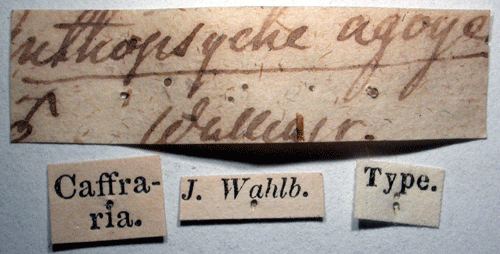 Anthopsyche agoye
♂ Wallengr.
Caffra-
ria.
J. Wahlb.
Type.